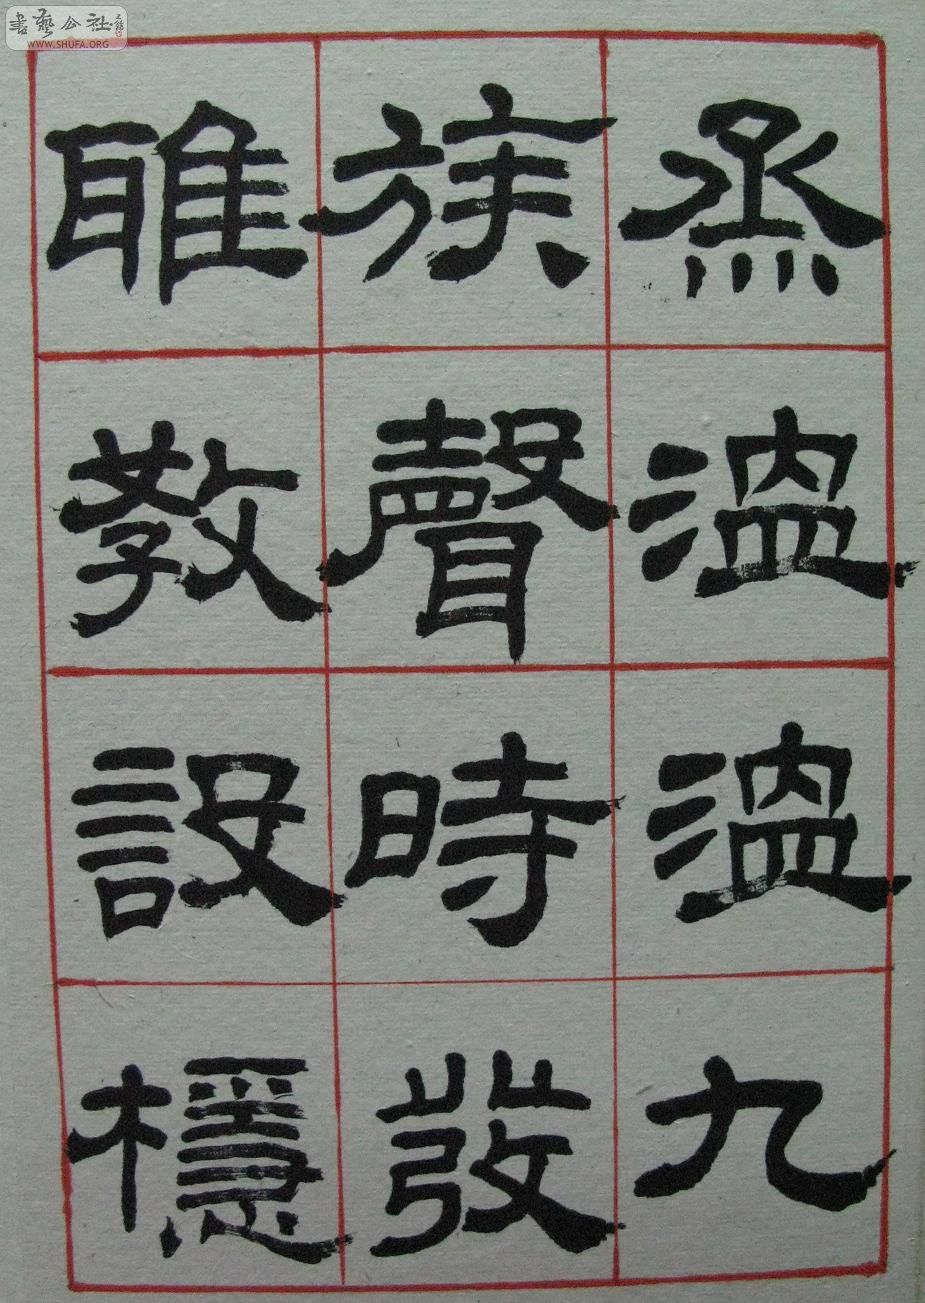 書藝公社
WWW.SHUFA.ORG
烝溫溫九
族聲時發
雎教設檼